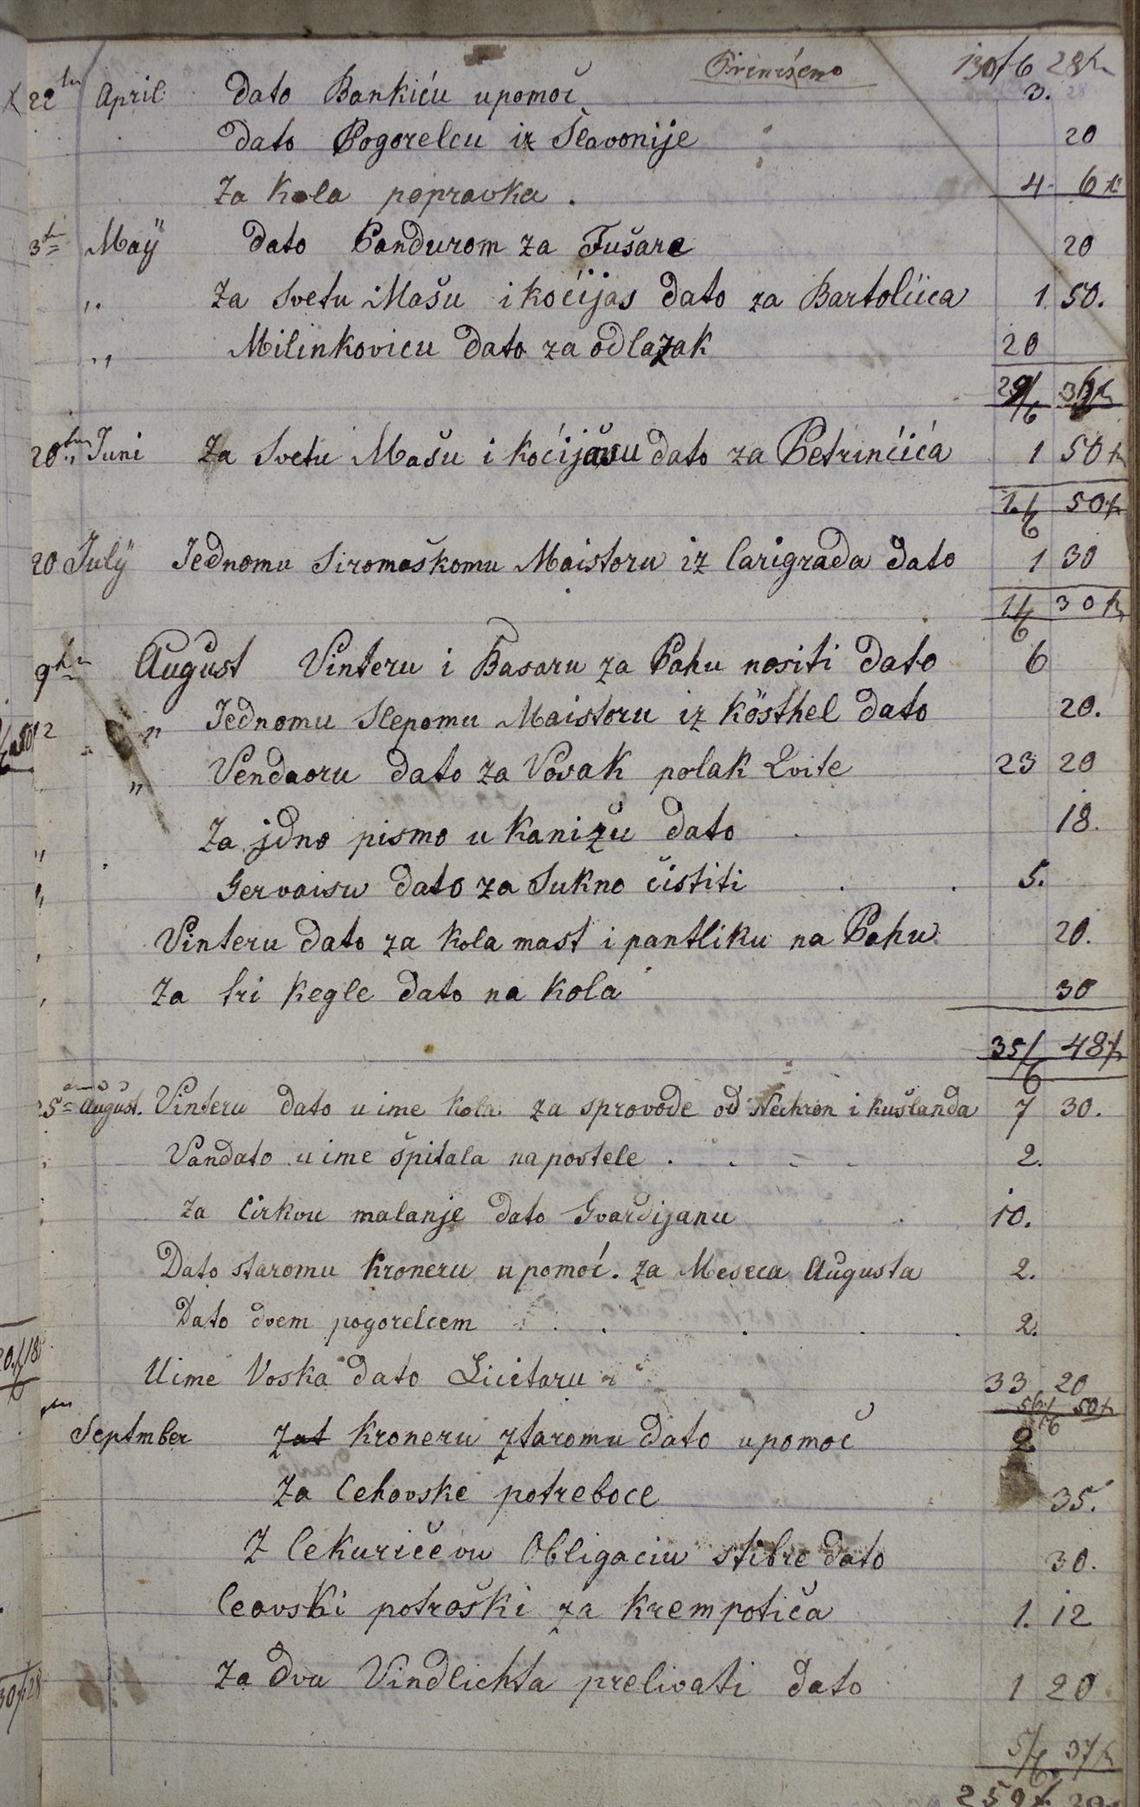 Prinišeno 130 f 6 28 k
x 22ten April dato Bankiću upomoč 3.
dato Pogorelcu iz Slavonije 20
Za Kola popravka . 4 6 x
3t May dato Pandurom za Fušare 20
,, Za Svetu Mašu i kočijas dato za Bartolića 1 50.
,, Milinkovicu dato za odlazak 20
20ten Juni Za Svetu Mašu i kočijašu dato za Petrinčića 1 50 k
1 f 50 k
20 July Jednomu Siromaškomu Maistoru iz Carigrada dato 1 30
1 f 30 k
9ten August Vinteru i Basaru za Pahu nositi dato 6
,, Jednomu Slepomu Maistoru iz Kösthel dato 20.
,, Vendaoru dato za Vosak polak Qvite 23 20
,, Za jdno pismo u Kanižu dato 18.
,, Gervaisu dato za Sukno čistiti 5.
Vinteru dato za kola mast i pantliku na Pahu 20.
Za tri Kegle dato na kola 30
35 f 48 k
25 August. Vinteru dato uime kola za sprovode od Nechron i kušlanda 7 30.
Vandato uime špitala na postele . 2.
Za Cirkvu malanje dato Gvardijanu 10.
Dato staromu Kroneru upomoč. za Meseca Augusta 2.
Dato dvem pogorelcem 2.
Uime Voska dato Licitaru 33 20
56 f 50 k
Septmber Kroneru ztaromu dato upomoč 2
Za Cehovske potreboce 35.
Z Cekuričevu Obligaciu stibre dato 30.
Ceovski potroški za Krempotiča 1. 12
Za dva Vindlichta prelivati dato 1 20
5 f 37 k
259 f 20